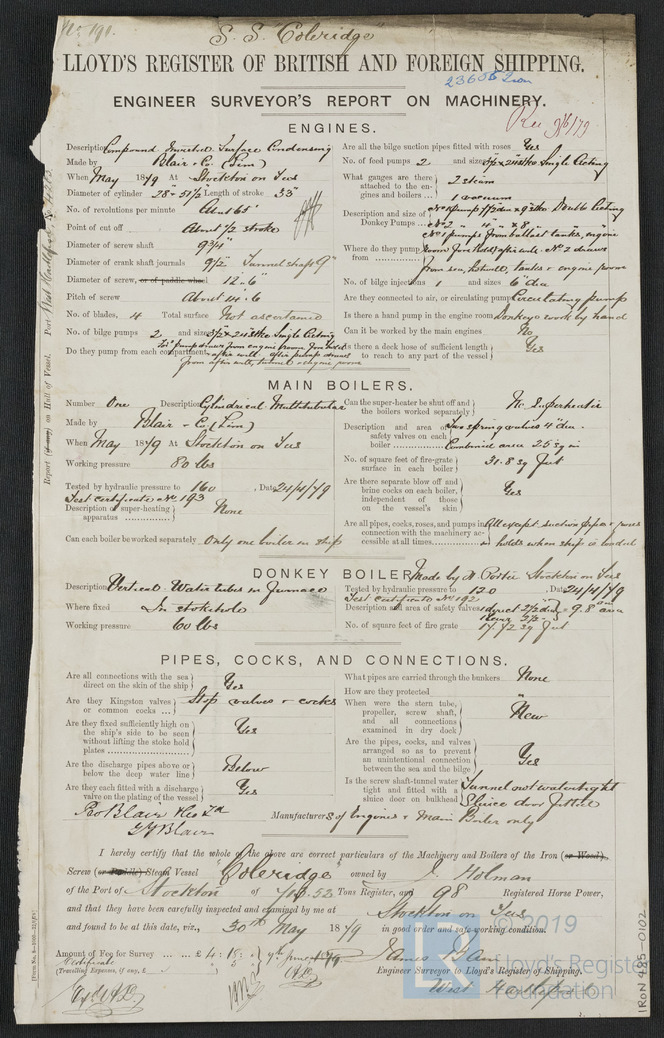 No. 191.
S.S. "Coleridge"
LLOYD'S REGISTER OF BRITISH AND FOREIGN SHIPPING.
23605 Iron
ENGINEER SURVEYOR'S REPORT ON MACHINERY.
Rec 9/6/79
ENGINES.
Description Compound Inverted Surface Condensing
Made by Blair & Co. (Lim)
When May 1879 At Stockton on Tees
Diameter of cylinder 28" & 51½" Length of stroke 33"
No. of revolutions per minute About 65
Point of cut off About ½ stroke
Diameter of screw shaft 9¾"
Diameter of crank shaft journals 9½" Tunnel shaft 9"
Diameter of screw, or of paddle wheel 12.6"
Pitch of screw About 14.6
No. of blades, 4 Total surface Not ascertained
No. of bilge pumps 2 and sizes 3½ x 24 stke Single Acting
Do they pump from each compartment
Are all the bilge suction pipes fitted with roses Yes
No. of feed pumps 2 and sizes 3½ x 24 stke Single Acting
What gauges are there attached to the engines and boilers ... 2 steam
1 vacuum
Description and size of Donkey Pumps ... Double Acting
Where do they pump from
from sea, hotwell, tanks & engine room
No. of bilge injections 1 and sizes 6" dia
Are they connected to air, or circulating pump Circulating pump
Is there a hand pump in the engine room Donkeys work by hand
Can it be worked by the main engines No
Is there a deck hose of sufficient length to reach to any part of the vessel Yes
MAIN BOILERS.
Number One Description Cylindrical Multitubular
Made by Blair & Co. (Lim)
When May 1879 At Stockton on Tees
Working pressure 80 lbs
Tested by hydraulic pressure to 160, Date 24/4/79
Test certificate No. 193
Description of super-heating apparatus ............ None
Can each boiler be worked separately Only one boiler in ship
Can the super-heater be shut off and the boilers worked separately No Superheater
Description and area of safety valves on each boiler ............ Two spring valves 4" dia.
Combined area 25 sq in
No. of square feet of fire-grate surface in each boiler 31.8 sq feet
Are there separate blow off and brine cocks on each boiler, independent of those on the vessel's skin Yes
Are all pipes, cocks, roses, and pumps in connection with the machinery accessible at all times............ All except suction pipes & roses
in holds when ship is loaded
DONKEY BOILER Made by Stockton on Tees
Description Vertical Water tubes in furnace
Where fixed In stokehole
Working pressure 60 lbs
Tested by hydraulic pressure to 120, Date 24/4/79
Test certificate No. 192
Description and area of safety valves
No. of square feet of fire grate 17.72 sq feet
PIPES, COCKS, AND CONNECTIONS.
Are all connections with the sea direct on the skin of the ship Yes
Are they Kingston valves or common cocks ... Stop valves & cocks
Are they fixed sufficiently high on the ship's side to be seen without lifting the stoke hold plates .................. Yes
Are the discharge pipes above or below the deep water line Below
Are they each fitted with a discharge valve on the plating of the vessel Yes
What pipes are carried through the bunkers None
How are they protected "
When were the stern tube, propeller, screw shaft, and all connections examined in dry dock New
Are the pipes, cocks, and valves arranged so as to prevent an unintentional connection between the sea and the bilge Yes
Is the screw shaft-tunnel water tight and fitted with a sluice door on bulkhead Tunnel not watertight
Sluice door fitted
Pro Blair & Co Ld
G Y Blair
Manufacturers of Engines & Main Boiler only
I hereby certify that the whole of the above are correct particulars of the Machinery and Boilers of the Iron (or Wood),
Screw (or Paddle) Steam Vessel "Coleridge" owned by J. Holman
of the Port of Stockton of Tons Register, and 98 Registered Horse Power,
and that they have been carefully inspected and examined by me at Stockton on Tees
and found to be at this date, viz., 30th May 1879 in good order and safe working condition.
Amount of Fee for Survey ... £ 4 : 18 :
Certificate
(Travelling Expenses, if any, £
Engineer Surveyor to Lloyd's Register of Shipping.
West Hartlepool
Report (if any) on Hull of Vessel. Port West Hartlepool
IRON 485-0102
© 2019
Lloyd's Register
Foundation